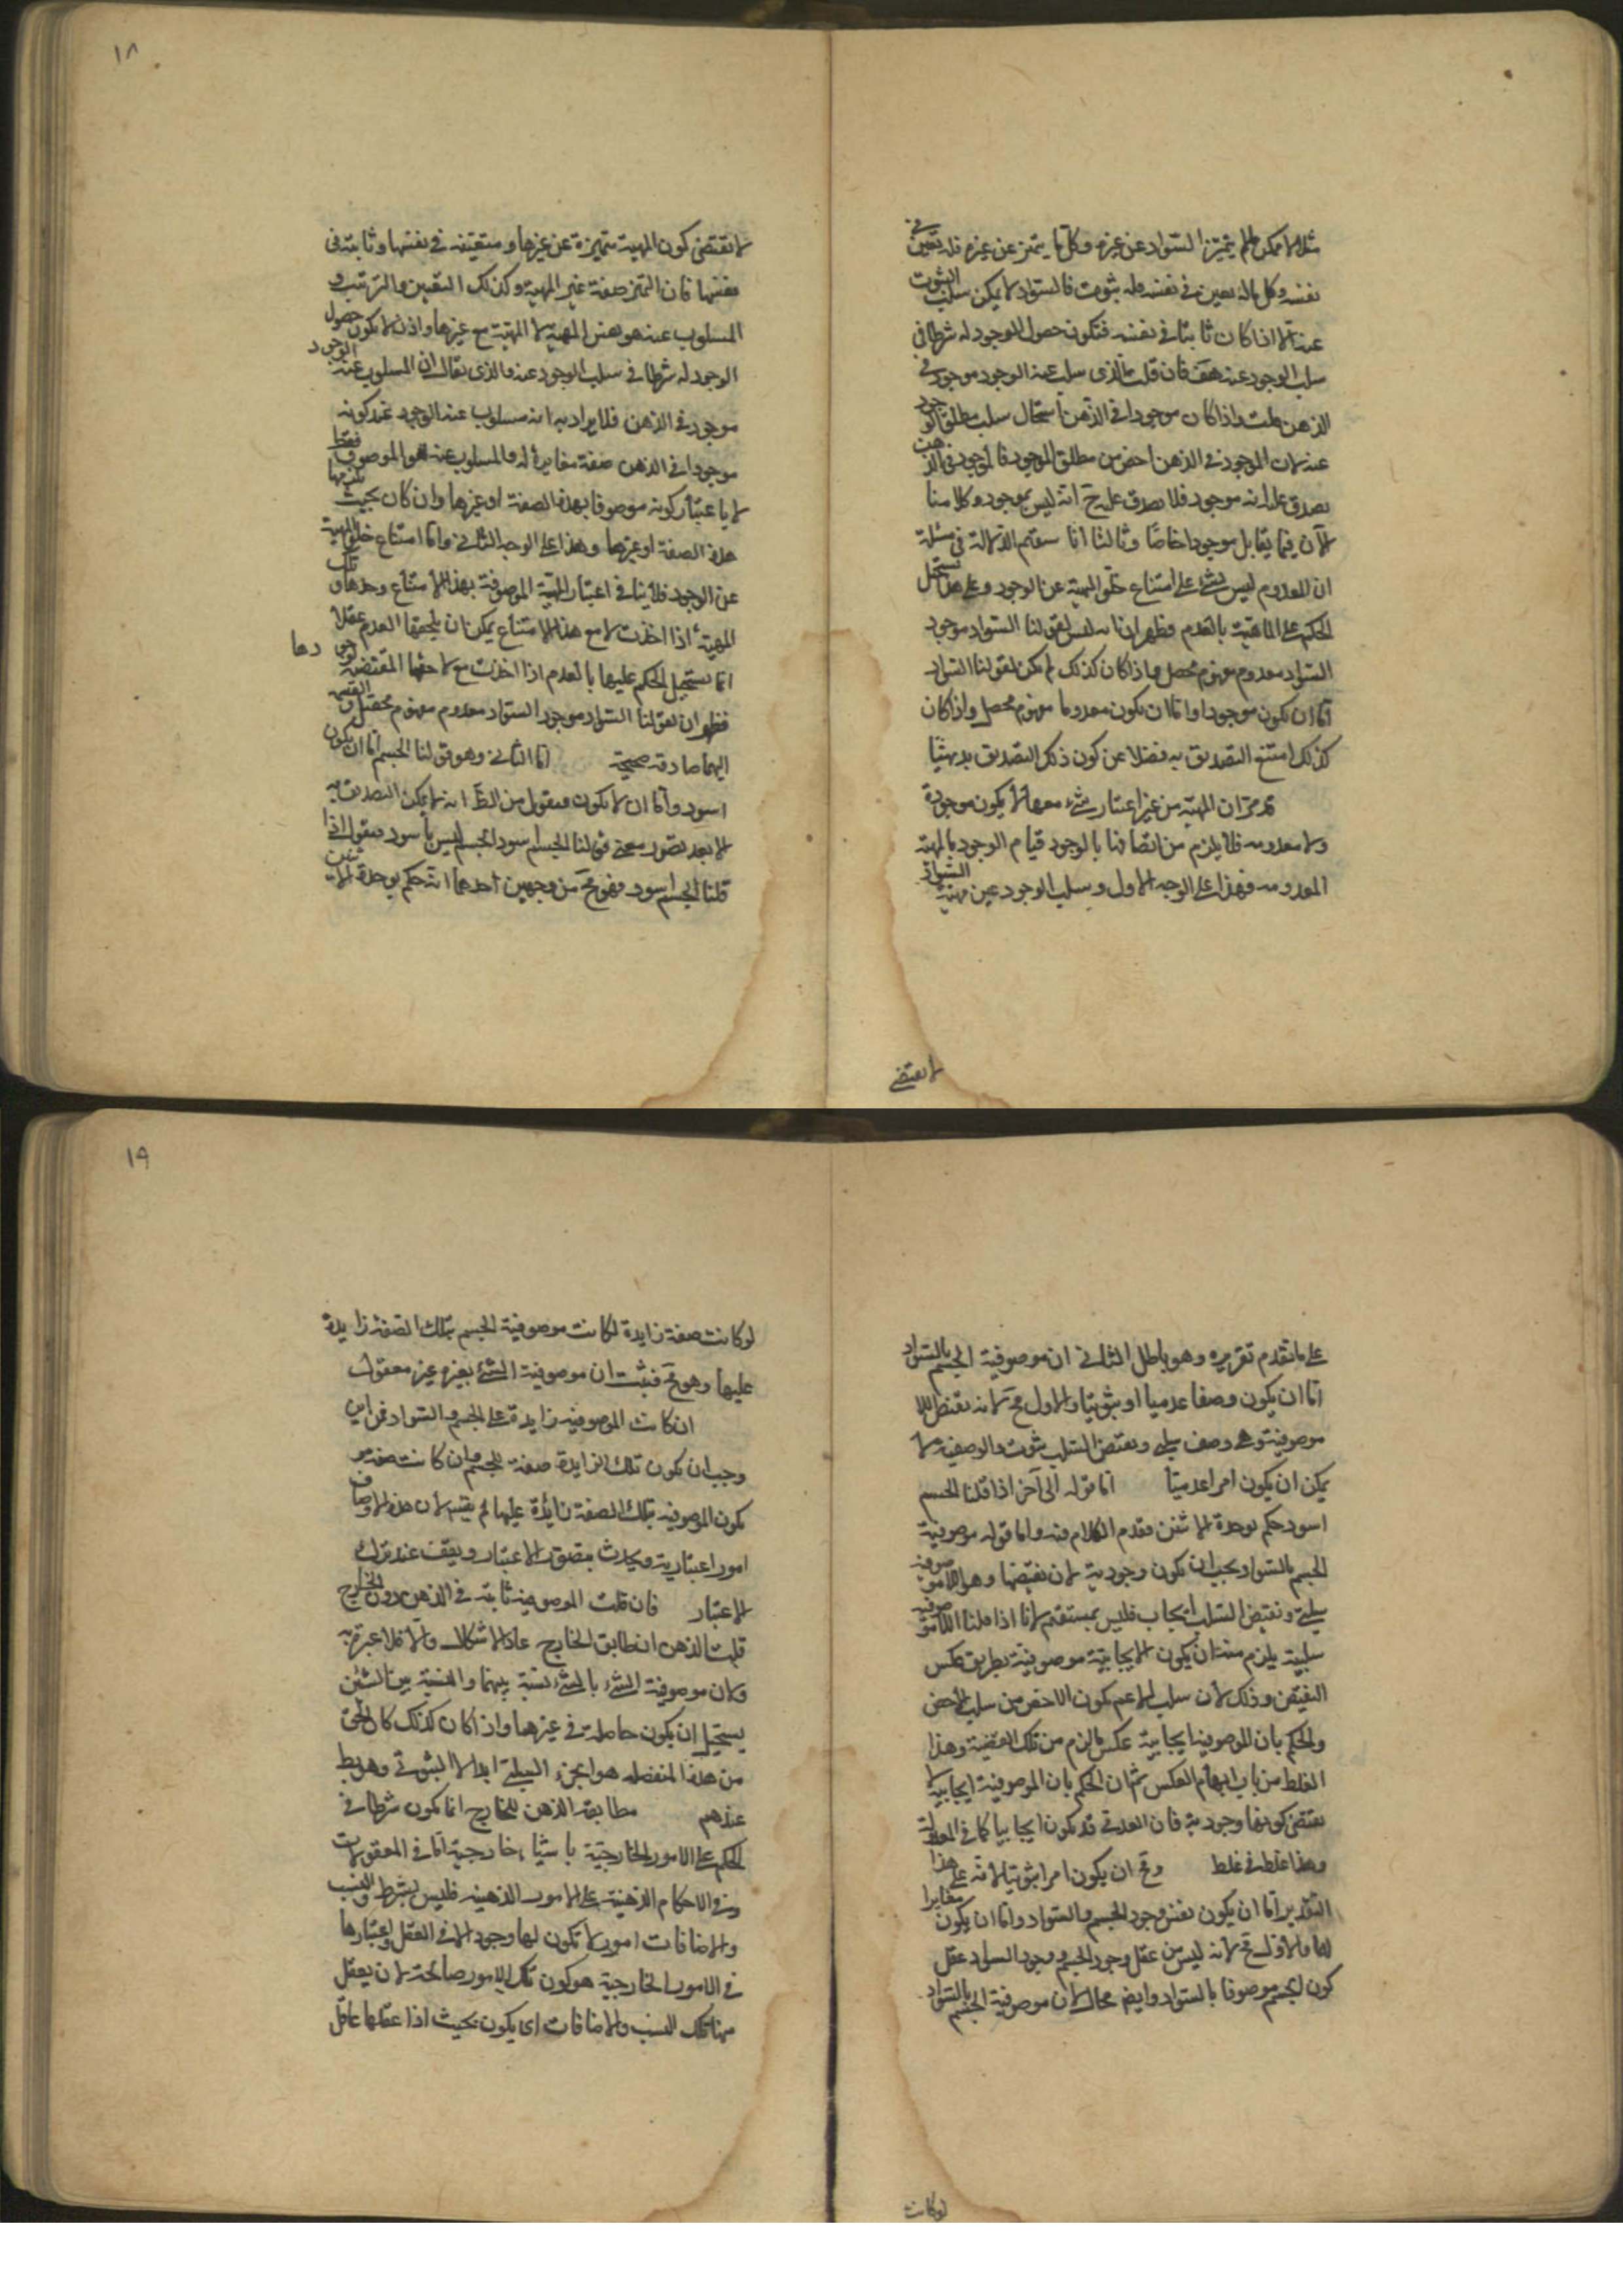 ١٨
مثلا لا يمكن ما لم يتميز السواد عن غيره وكل ما يتميز عن غيره فله تعين في
نفسه وكل ماله تعين في نفسه فله ثبوت فالسواد لا يمكن سلب الثبوت
عنه الا اذا كان ثابتا في نفسه فتكون حصول الوجود له شرطا في
سلب الوجود عنه هف فان قلت الذى سلب عنه الوجود موجود في
الذهن قلت واذا كان موجودا في الذهن استحال سلب مطلق الوجود
عنه لان الموجود في الذهن اخص من مطلق الموجود فالموجود في الذهن
يصدق عليه انه موجود فلا يصدق عليه ح انه ليس بموجود وكلامنا
الآن فيما يقابل موجودا خاصا وثالثا انا سنقيم الدلالة في مسئلة
ان المعدوم ليس بشئ على امتناع خلو المهية عن الوجود وعلى هذا يستحيل
الحكم على الماهية بالعدم فظهر انه ليس لقولنا السواد موجود
السواد معدوم مفهوم محصل واذا كان كذلك لم يكن لقولنا السواد
اما ان يكون موجودا واما ان يكون معدوما مفهوم محصل واذا كان
كذلك امتنع التصديق به فضلا عن كون ذلك التصديق بديهيا
قد مر ان المهية من غير اعتبار شئ معها لا يكون موجودة
ولا معدومه فلا يلزم من اتصافنا بالوجود قيام الوجود بالمهية
المعدومه فهذا على الوجه الاول وسلب الوجود عين مهية السواد
لا يقتضى
لا تقتضى كون المهية متميزة عن غيرها ومتعينه في نفسها وثابته فى
نفسها فان التميز صفة غير المهية وكذلك التعين والترتب و
المسلوب عنه هو نفس المهية لا المهية مع غيرها واذن لا يكون حصول
الوجود له شرطا في سلب الوجود عنه والذى يقال ان المسلوب عنه الوجود
موجود في الذهن فلا يراد به انه مسلوب عنه الوجود عند كونه
موجودا في الذهن صفة مغايرة له والمسلوب عنه هو الموصوف فقط
لا باعتبار كونه موصوفا بهذه الصفة او غيرها وان كان بحيث تلزمها
هذه الصفة او غيرها وهذا على الوجه الثانى واما امتناع خلو المهية
عن الوجود فلا ينافى اعتبار المهية الموصوفة بهذا الامتناع وحدها و تلك
المهية اذا اخذت لا مع هذا الامتناع يمكن ان يلحقها العدم عقلا
انما يستحيل الحكم عليها بالعدم اذا اخذت مع لاحقها المقتضيه لوجودها
فظهر ان لقولنا السواد موجود السواد معدوم مفهوم محصل و القسمة
اليهما صادقه صحيحة اما الثانى وهو قولنا الجسم اما ان يكون
اسود واما ان لا يكون فنقول من الظ انه لا يمكن التصديق به
الا بعد تصور معنى قولنا الجسم اسود الجسم ليس باسود فنقول اذا
قلنا الجسم اسود فهو مح من وجهين احدهما انه حكم بوحدة الاثنين
١٩
على ما تقدم تقريره وهو باطل الثانى ان موصوفية الجسم بالسواد
اما ان يكون وصفا عدميا او ثبوتيا والاول مح لانه نقيض اللا
موصوفية وهى وصف سلبى ونقيض السلب ثبوت والوصفية لا
يمكن ان يكون امرا عدميا اما قوله الى آخر اذا قلنا الجسم
اسود حكم بوحدة الاثنين فقدم الكلام فيه واما قوله موصوفية
الجسم بالسواد يجب ان تكون وجودية لان نقيضها وهو اللاموصوفية
سلبى ونقيض السلب ايجاب فليس بمستقيم لانا اذا قلنا اللاموصوفية
سلبية يلزم منه ان يكون الايجابية موصوفية بطريق عكس
النقيض وذلك لان سلب الاعم يكون الاخص من سلب الاخص
والحكم بان الموصوفية ايجابية عكس ما لزم من تلك القضية وهذا
الغلط من باب ايهام العكس ثم ان الحكم بان الموصوفية ايجابية لا
يقتضى كونها وجودية فان العدمى قد يكون ايجابيا كما في المعدولة
وهذا غلط في غلط ومح ان يكون امرا ثبوتيا لانه على هذا
التقدير اما ان يكون نفس وجود الجسم والسواد واما ان يكون مغايرا
لهما والاول مح لانه ليس من عقل وجود الجسم ووجود السواد عقل
كون الجسم موصوفا بالسواد وايضا محال لان موصوفية الجسم بالسواد
لوكانت
لو كانت صفة زايدة لكانت موصوفية الجسم بتلك الصفة زايدة
عليها وهو مح فثبت ان موصوفية الشئ بغيره غير معقول
ان كانت الموصوفية زايدة على الجسم والسواد فمن اين
وجب ان يكون تلك الزايدة صفة للجسم وان كانت صفة لم
يكون الموصوفيه بتلك الصفة زائدة عليها لم يقسم لان هذه الاوصاف
امور اعتبارية ويحدث بتصور الاعتبار ويقف عند ترك
الاعتبار فان قلت الموصوفية ثابتة في الذهن دون الخارج
قلت الذهن ان طابق الخارج عاد الاشكال والا فلا عبرة به
ولان موصوفية الشئ بالشئ نسبة بينهما والنسبة بين الشيئين
يستحيل ان يكون حاصلة في غيرهما واذا كان كذلك كان الحق
من هذه المنفصله هو الجزء السلبى ابدا لا الثبوتى وهو بط
عندهم مطابقة الذهن للخارج انما يكون شرطا في
الحكم على الامور الخارجية باشياء خارجية اما في المعقولات
وفى الاحكام الذهنية على الامور الذهنيه فليس بشرط والنسب
والاضافات امور لا تكون لها وجود الا في العقل واعتبارها
في الامور الخارجية هو كون تلك الامور صالحة لان يعقل
منها تلك النسب والاضافات اى يكون بحيث اذا عقلها عاقل